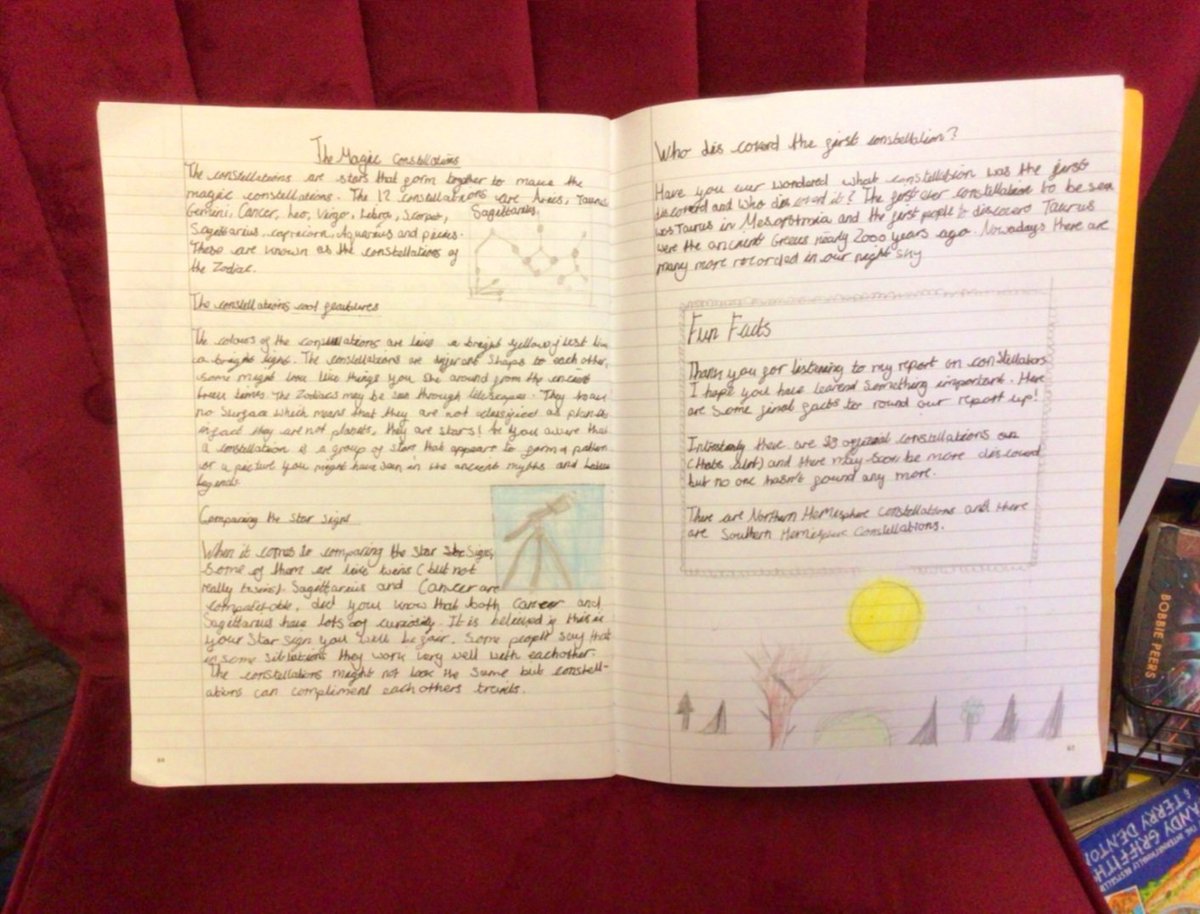 The Magic Constellations
The constellations are stars that form together to make the
magic constellations. The 12 constellations are Aries, Taurus
Gemini, Cancer, Leo, Virgo, Libra, Scorpio, Sagittarius,
Sagittarius, capricorn, Aquarius and
These are known as the constellations of
the Zodiac.
The constellations cool
The colours of the constellations are like a bright yellow/
a bright light. The constellations are shape to each other,
some might look like things you she around from the
times. The Zodiacs may be seen through They
no surface which means that they are not as planets
infact they are not planets, they are stars! you aware that
a constellation is a group of stars that appears to form a pattern
or a picture you might have seen in the ancient myths and
legends.
Comparing the Star Signs
When it comes to comparing the star Signs,
some of them are like twins (but not
really twins). Sagittarius and Cancer are
did you know that both Cancer and
Sagittarius have lots of curiosity. It is believed if this is
your star sign you will be fair. Some people say that
in some they work very well with eachother.
The constellations might not look the same but constell-
ations can compliment each others
64
Who dis coverd the first constellation?
Have you ever wondered what constellation was the first
discoverd and who dis coverd it? The first ever constellation to be seen
was Taurus in and the first people to discovers Taurus
were the ancient Greeks nearly 2000 years ago. Nowadays there are
many more recorded in our night sky
Fun Facts
Thank you for listening to my report on
I hope you have something important. Here
are some final facts to round our report up!
there are constellations
(thats alot) and there may soon be more dis coverd
but no one hasn't found any more.
There are Northern Hemisphere Constellations and there
are Southern Hemisphere Constellations.
65
BOBBIE PEERS
THE INTERNATIONALLY BESTSELLING
ANDY GRIFFITHS
& TERRY DENTON